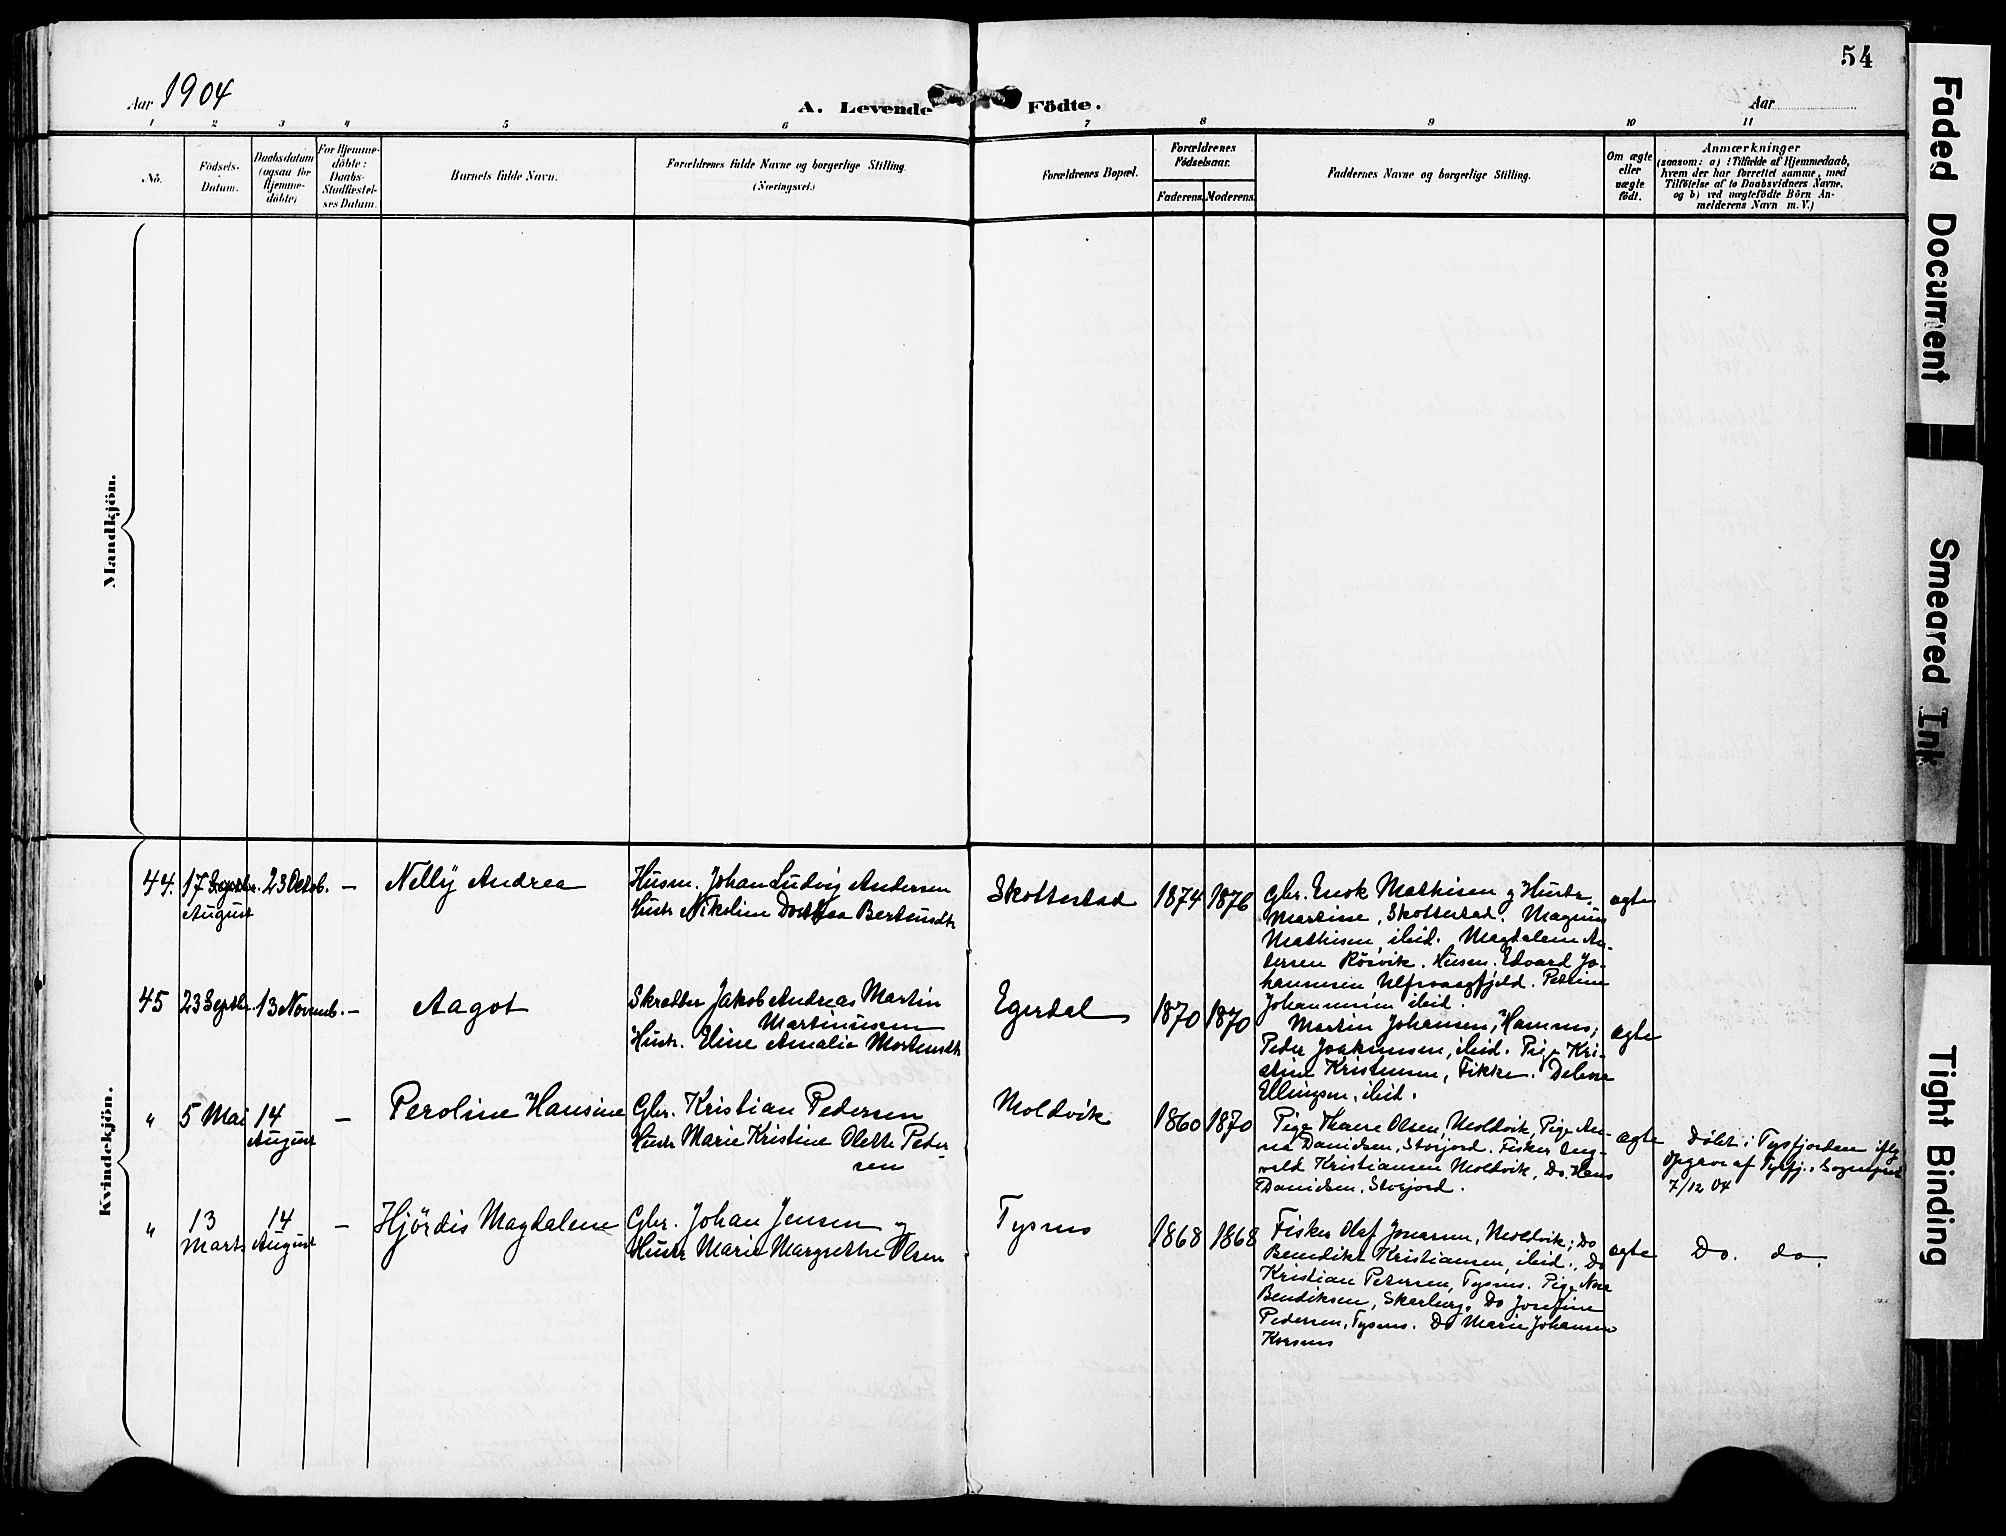 54
Aar 1904
A. Levende Födte.
Aar
1 2 3 4 5 6 7 8 9 10 11
No.
Födsels-
Datum.
Daabsdatum
(ogsaa for
Hjemme-
döbte)
For Hjemme-
döbte:
Daabs-
Stadfæstel-
ses Datum.
Barnets fulde Navn.
Forældrenes fulde Navne og borgerlige Stilling
(Næringsvei.)
Forældrenes Bopæl.
Forældrenes
Födselsaar.
Faderens. Moderens.
Faddernes Navne og borgerlige Stilling.
Om ægte
eller
uægte
födt.
Anmærkninger
(saasom: a) i Tilfælde af Hjemmedaab,
hvem der har forrettet samme, med
Tilföielse af to Daabsvidners Navne,
og b) ved uægtefödte Börn An-
melderens Navn m. V.)
Mandkjön.
Kvindekjön.
44. 17 Septbr. 23 Oktob. —
August
Nelly Andrea
Husm. Johan Ludvig Andersen
Hustr. Nikoline Dorthea Berteusdtr
Skotterstad
1874 1876
Gbr. Enok Mathisen og Hustr.
Martine, Skotterstad. Magnus
Mathisen, ibid. Magdalene An-
dersen Rösvik. Husm. Edvard Jo-
hannesen, Ulfsvaagfjeld. Petrine
Johannesen ibid.
ægte
45 23 Septbr. 13 Novemb. —
Aagot
Skrædder Jakob Andreas Martin
Martinusen
Hustr. Eline Amalie Mortensdtr
Egerdal
1870 1870
Martin Johansen, Hamnes;
Peder Joakimsen, ibid. Pige Kri-
stine Kristensen, Fikke. Delene
Ellingsen, ibid.
ægte
" 5 Mai 14 —
August
Peroline Hansine
Gbr. Kristian Pedersen
Hustr Marie Kristine Olette Peder-
sen
Moldvik
1860 1870
Pige Olsen, Moldvik, Pige An-
na Danielsen, Storjord. Fisker Ing-
vald Kristiansen Moldvik, Do. Hans
Danielsen, Storjord.
ægte
Döbt i Tysfjorden iflg
Opgave af Tysfj. Sognepræst
7/12 04
" 13 14 —
Marts August
Hjördis Magdalene
Gbr. Johan Jensen og
Hustr Marie Margrethe Olsen
Tysnes
1868 1868
Fisker Olaf Jonassen, Moldvik; Do
Benedikt Kristiansen, ibid., Do
Kristian Petersen, Tysnes. Pige
Bendiksen, Skarberg. Do Josefine
Pedersen, Tysnes. Do Marie Johansen
Korsnes
ægte
Do. do.
Faded Document
Smeared Ink
Tight Binding